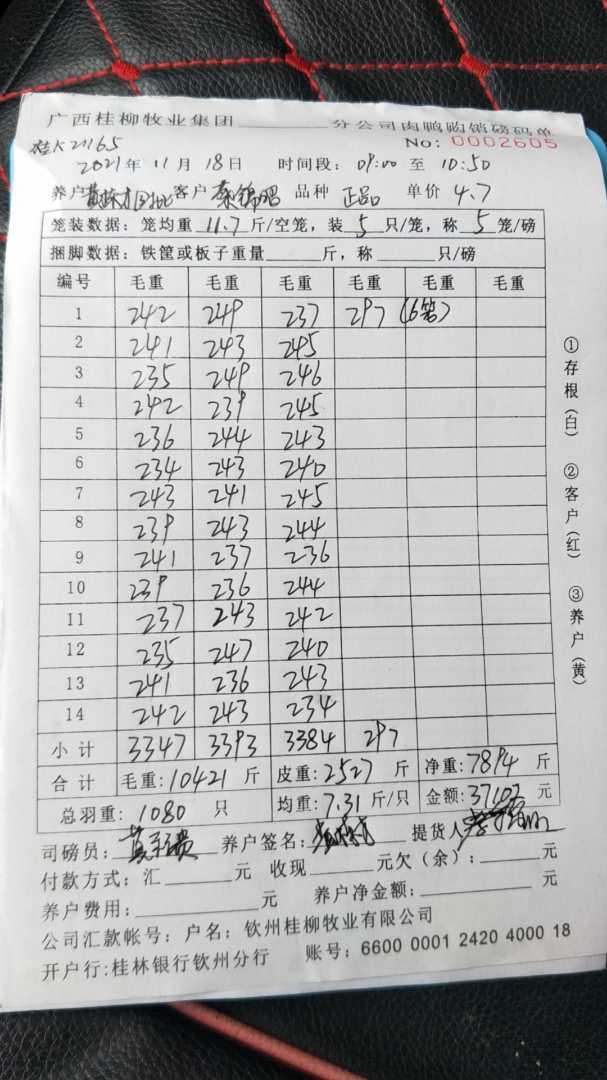 广西桂柳牧业集团________分公司肉鸭购销磅码单
21165 No: 0002605
2021年 11月 18日 时间段: 09:00 至 10:50
养户 客户 秦锦昭 品种 正品 单价 4.7
笼装数据: 笼均重 11.7 斤/空笼, 装 5 只/笼, 称 5 笼/磅
捆脚数据: 铁筐或板子重量______斤, 称______只/磅
编号 毛重 毛重 毛重 毛重 毛重 毛重
1 242 249 237 297 (6笼)
2 241 243 245
3 235 249 246
4 242 239 245
5 236 244 243
6 234 243 240
7 243 241 245
8 239 243 244
9 241 237 236
10 239 236 244
11 237 243 242
12 235 247 240
13 241 236 243
14 242 243 234
小计 3347 3393 3384 297
合计 毛重: 10421 斤 皮重: 2527 斤 净重: 7894 斤
总羽重: 1080 只 均重: 7.31 斤/只 金额: 37102 元
司磅员: 养户签名: 提货人
付款方式: 汇______元 收现______元欠(余): ______元
养户费用: ____________元 养户净金额: ____________元
公司汇款帐号: 户名: 钦州桂柳牧业有限公司
开户行: 桂林银行钦州分行 账号: 6600 0001 2420 4000 18
①存根(白) ②客户(红) ③养户(黄)